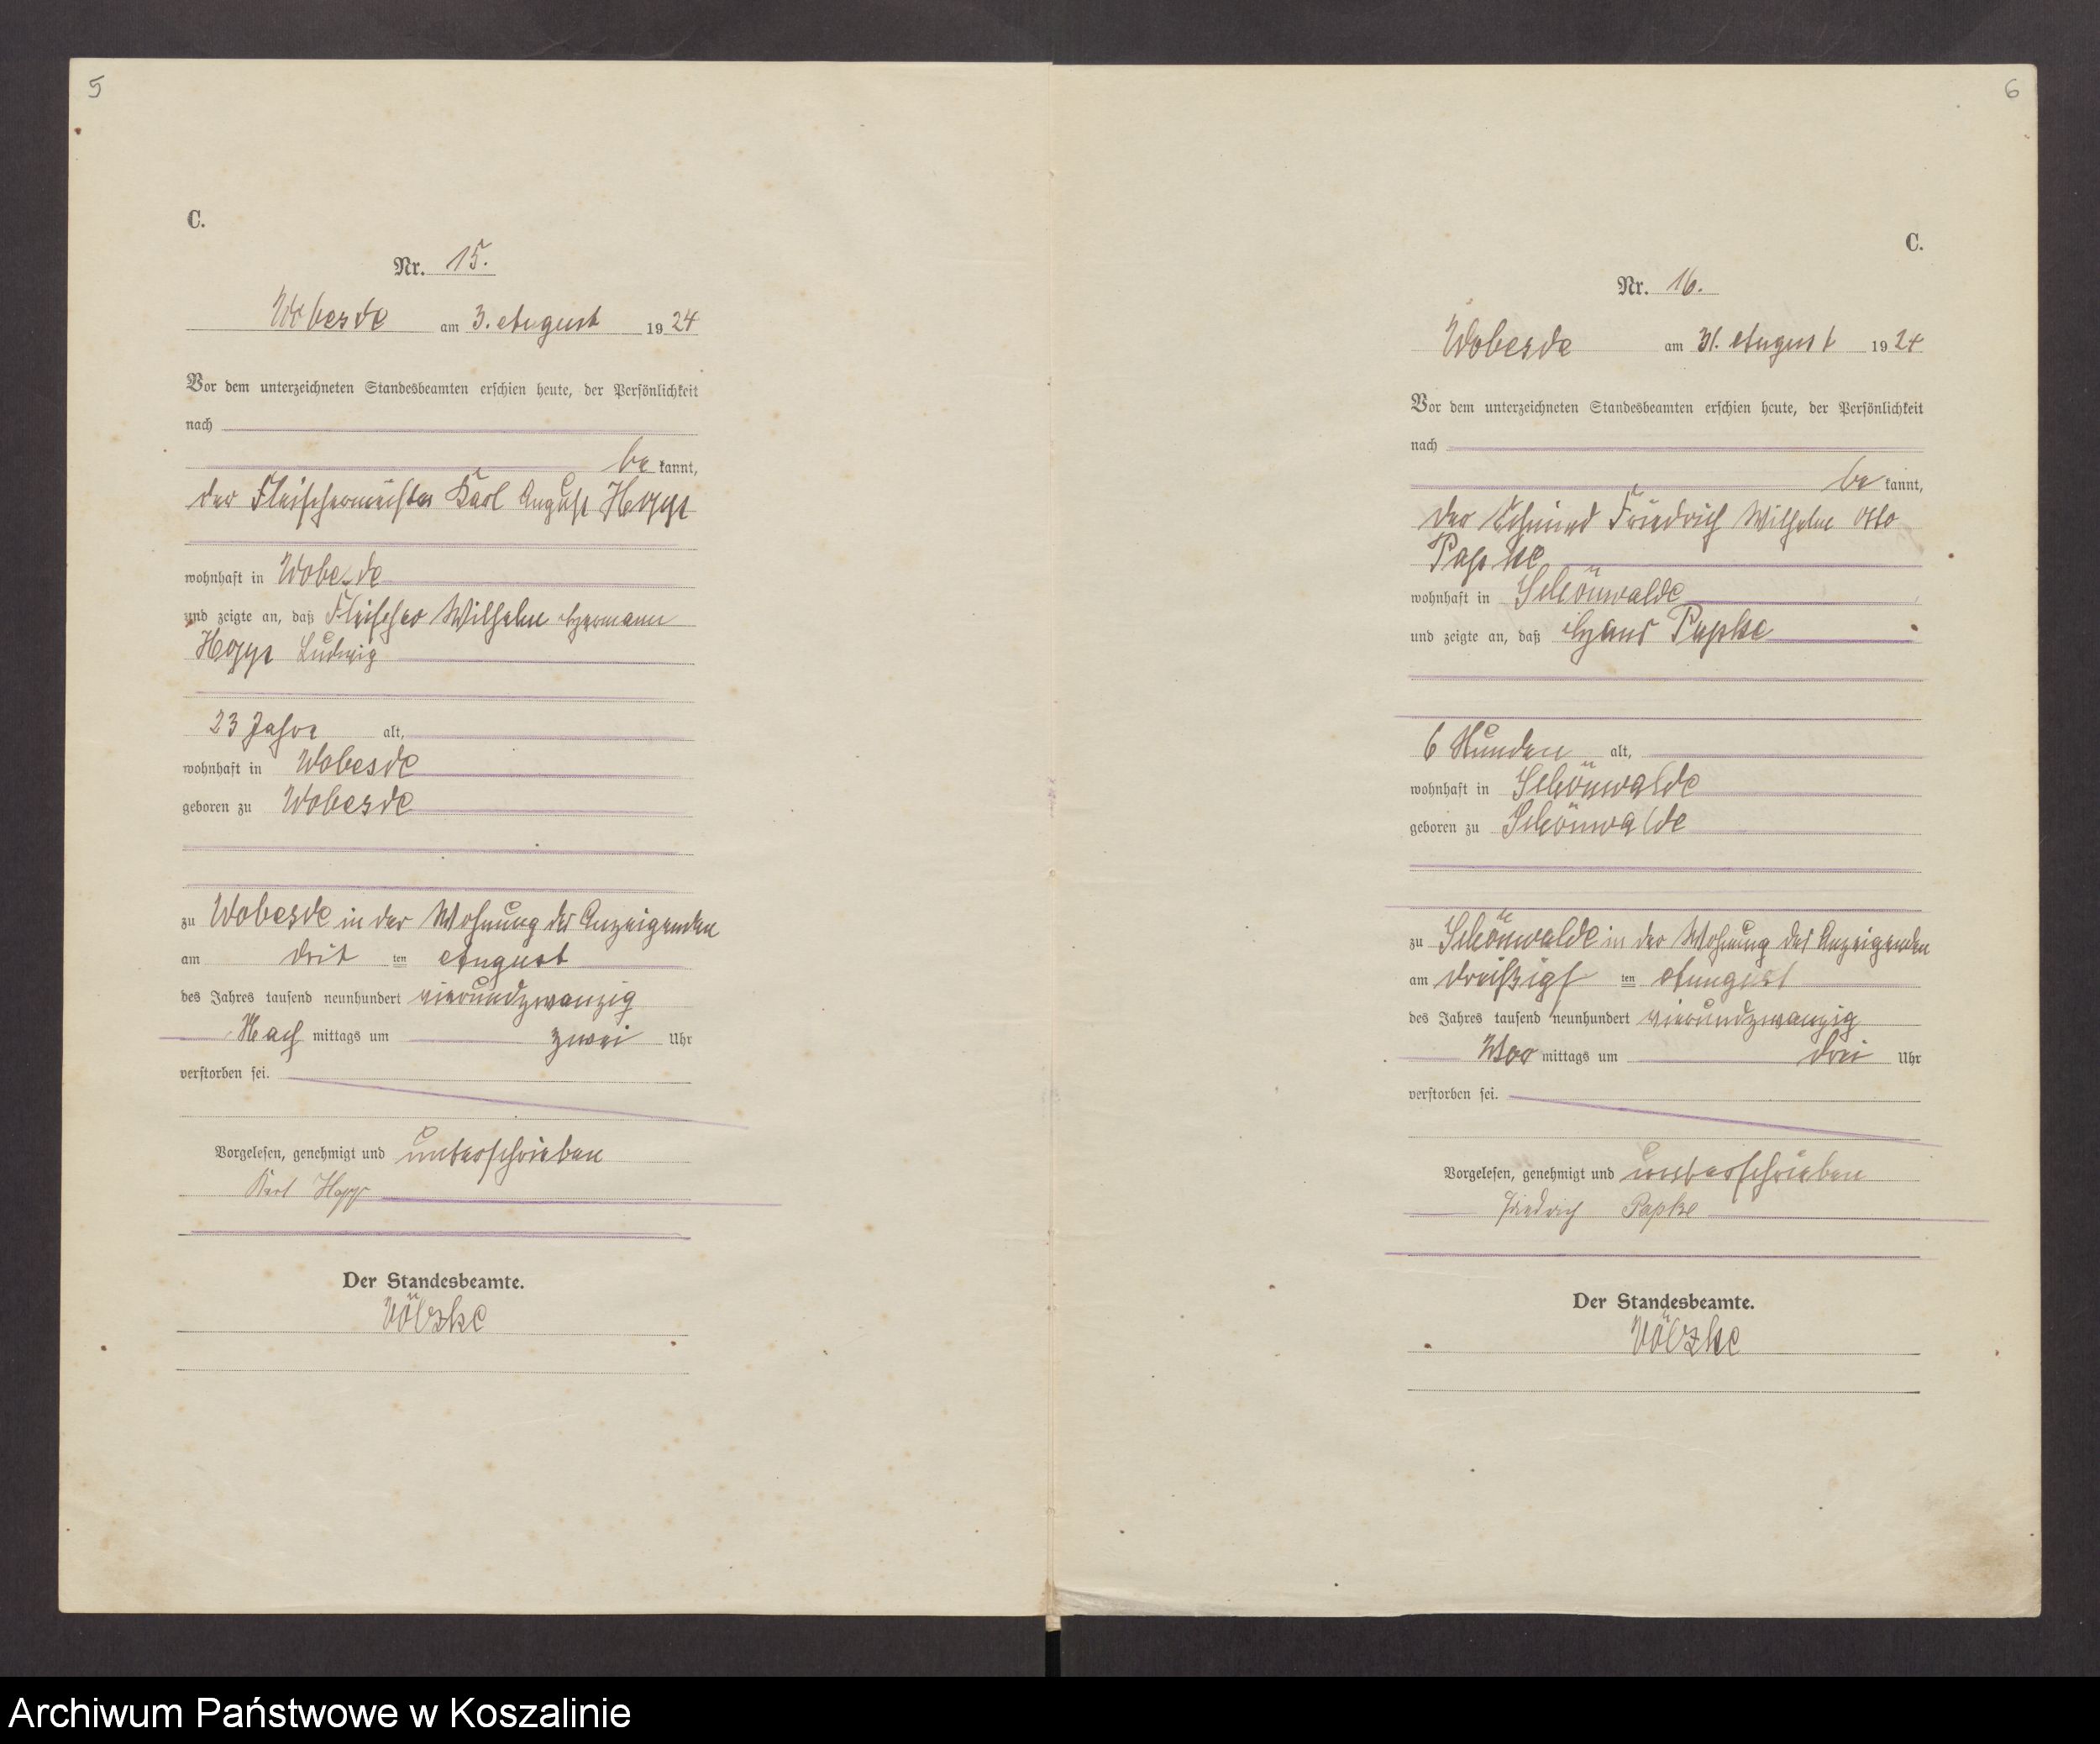 5
C.
Nr. 15.
Wobesde am 3. August 1924
Vor dem unterzeichneten Standesbeamten erschien heute, der Persönlichkeit
nach
be kannt,
der Fleischermeister Karl August Hopp
wohnhaft in Wobesde
und zeigte an, daß Fleischer Wilhelm Hermann
Hopp Ludwig
23 Jahre alt,
wohnhaft in Wobesde
geboren zu Wobesde
zu Wobesde in der Wohnung des Anzeigenden
am drit ten August
des Jahres tausend neunhundert vierundzwanzig
Nach mittags um zwei Uhr
verstorben sei.
Vorgelesen, genehmigt und unterschrieben
Karl Hopp
Der Standesbeamte.
Völzke
6
C.
Nr. 16.
Wobesde am 31. August 1924
Vor dem unterzeichneten Standesbeamten erschien heute, der Persönlichkeit
nach
be kannt,
der Schmied Friedrich Wilhelm Otto
Papke
wohnhaft in Schönwalde
und zeigte an, daß Hans Papke
6 Stunden alt,
wohnhaft in Schönwalde
geboren zu Schönwalde
zu Schönwalde in der Wohnung des Anzeigenden
am dreißigs ten August
des Jahres tausend neunhundert vierundzwanzig
Vor mittags um drei Uhr
verstorben sei.
Vorgelesen, genehmigt und unterschrieben
Friedrich Papke
Der Standesbeamte.
Völzke
Archiwum Państwowe w Koszalinie